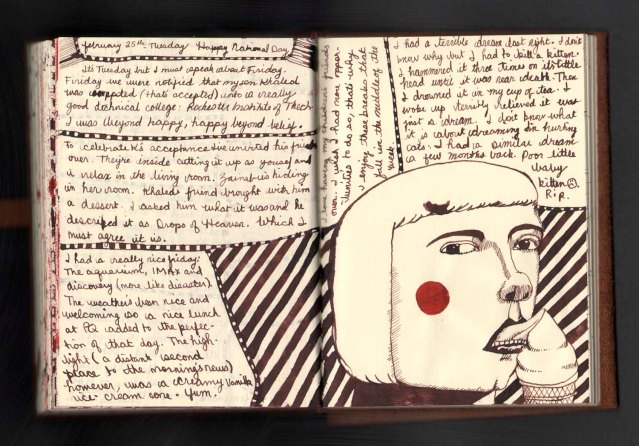 february 25th Tuesday Happy National Day
Its Tuesday but I must speak about Friday.
Friday we were notified that my son Khaled
was accepted (thats accepted) into a really
good technical college: Rochester Institute of Tech.
I was beyond happy, happy beyond belief.
To celebrate K's acceptance Ive invited his friends
over. They're inside cutting it up as yousef and
I relax in the living room. Zainab is hiding
in her room. Khaled's friend brought with him
a dessert. I asked him what it was and he
described it as Drops of Heaven. Which I
must agree it is.
I had a really nice friday:
The aquarium, IMAX and
discovery (more like disaster)
The weather's been nice and
welcoming so a nice lunch
at PQ added to the perfec-
tion of that day. The high-
light (a distant second
place to the morning's news)
however, was a creamy Vanilla
ice cream cone. Yum.
I love having my childrens friends
over. I wish I had more oppor-
tunities to do so, thats why
I enjoy these breaks that
fall in the middle of the
week
I had a terrible dream last night. I don't
know why but I had to kill a kitten.
I hammered it three times on its little
head until it was near death. Then
I drowned it in my cup of tea. I
woke up terribly relieved it was
just a dream. I don't know what
it is about dreaming on hurting
cats. I had a similar dream
a few months back. Poor little
baby
kitten
R.i.p.